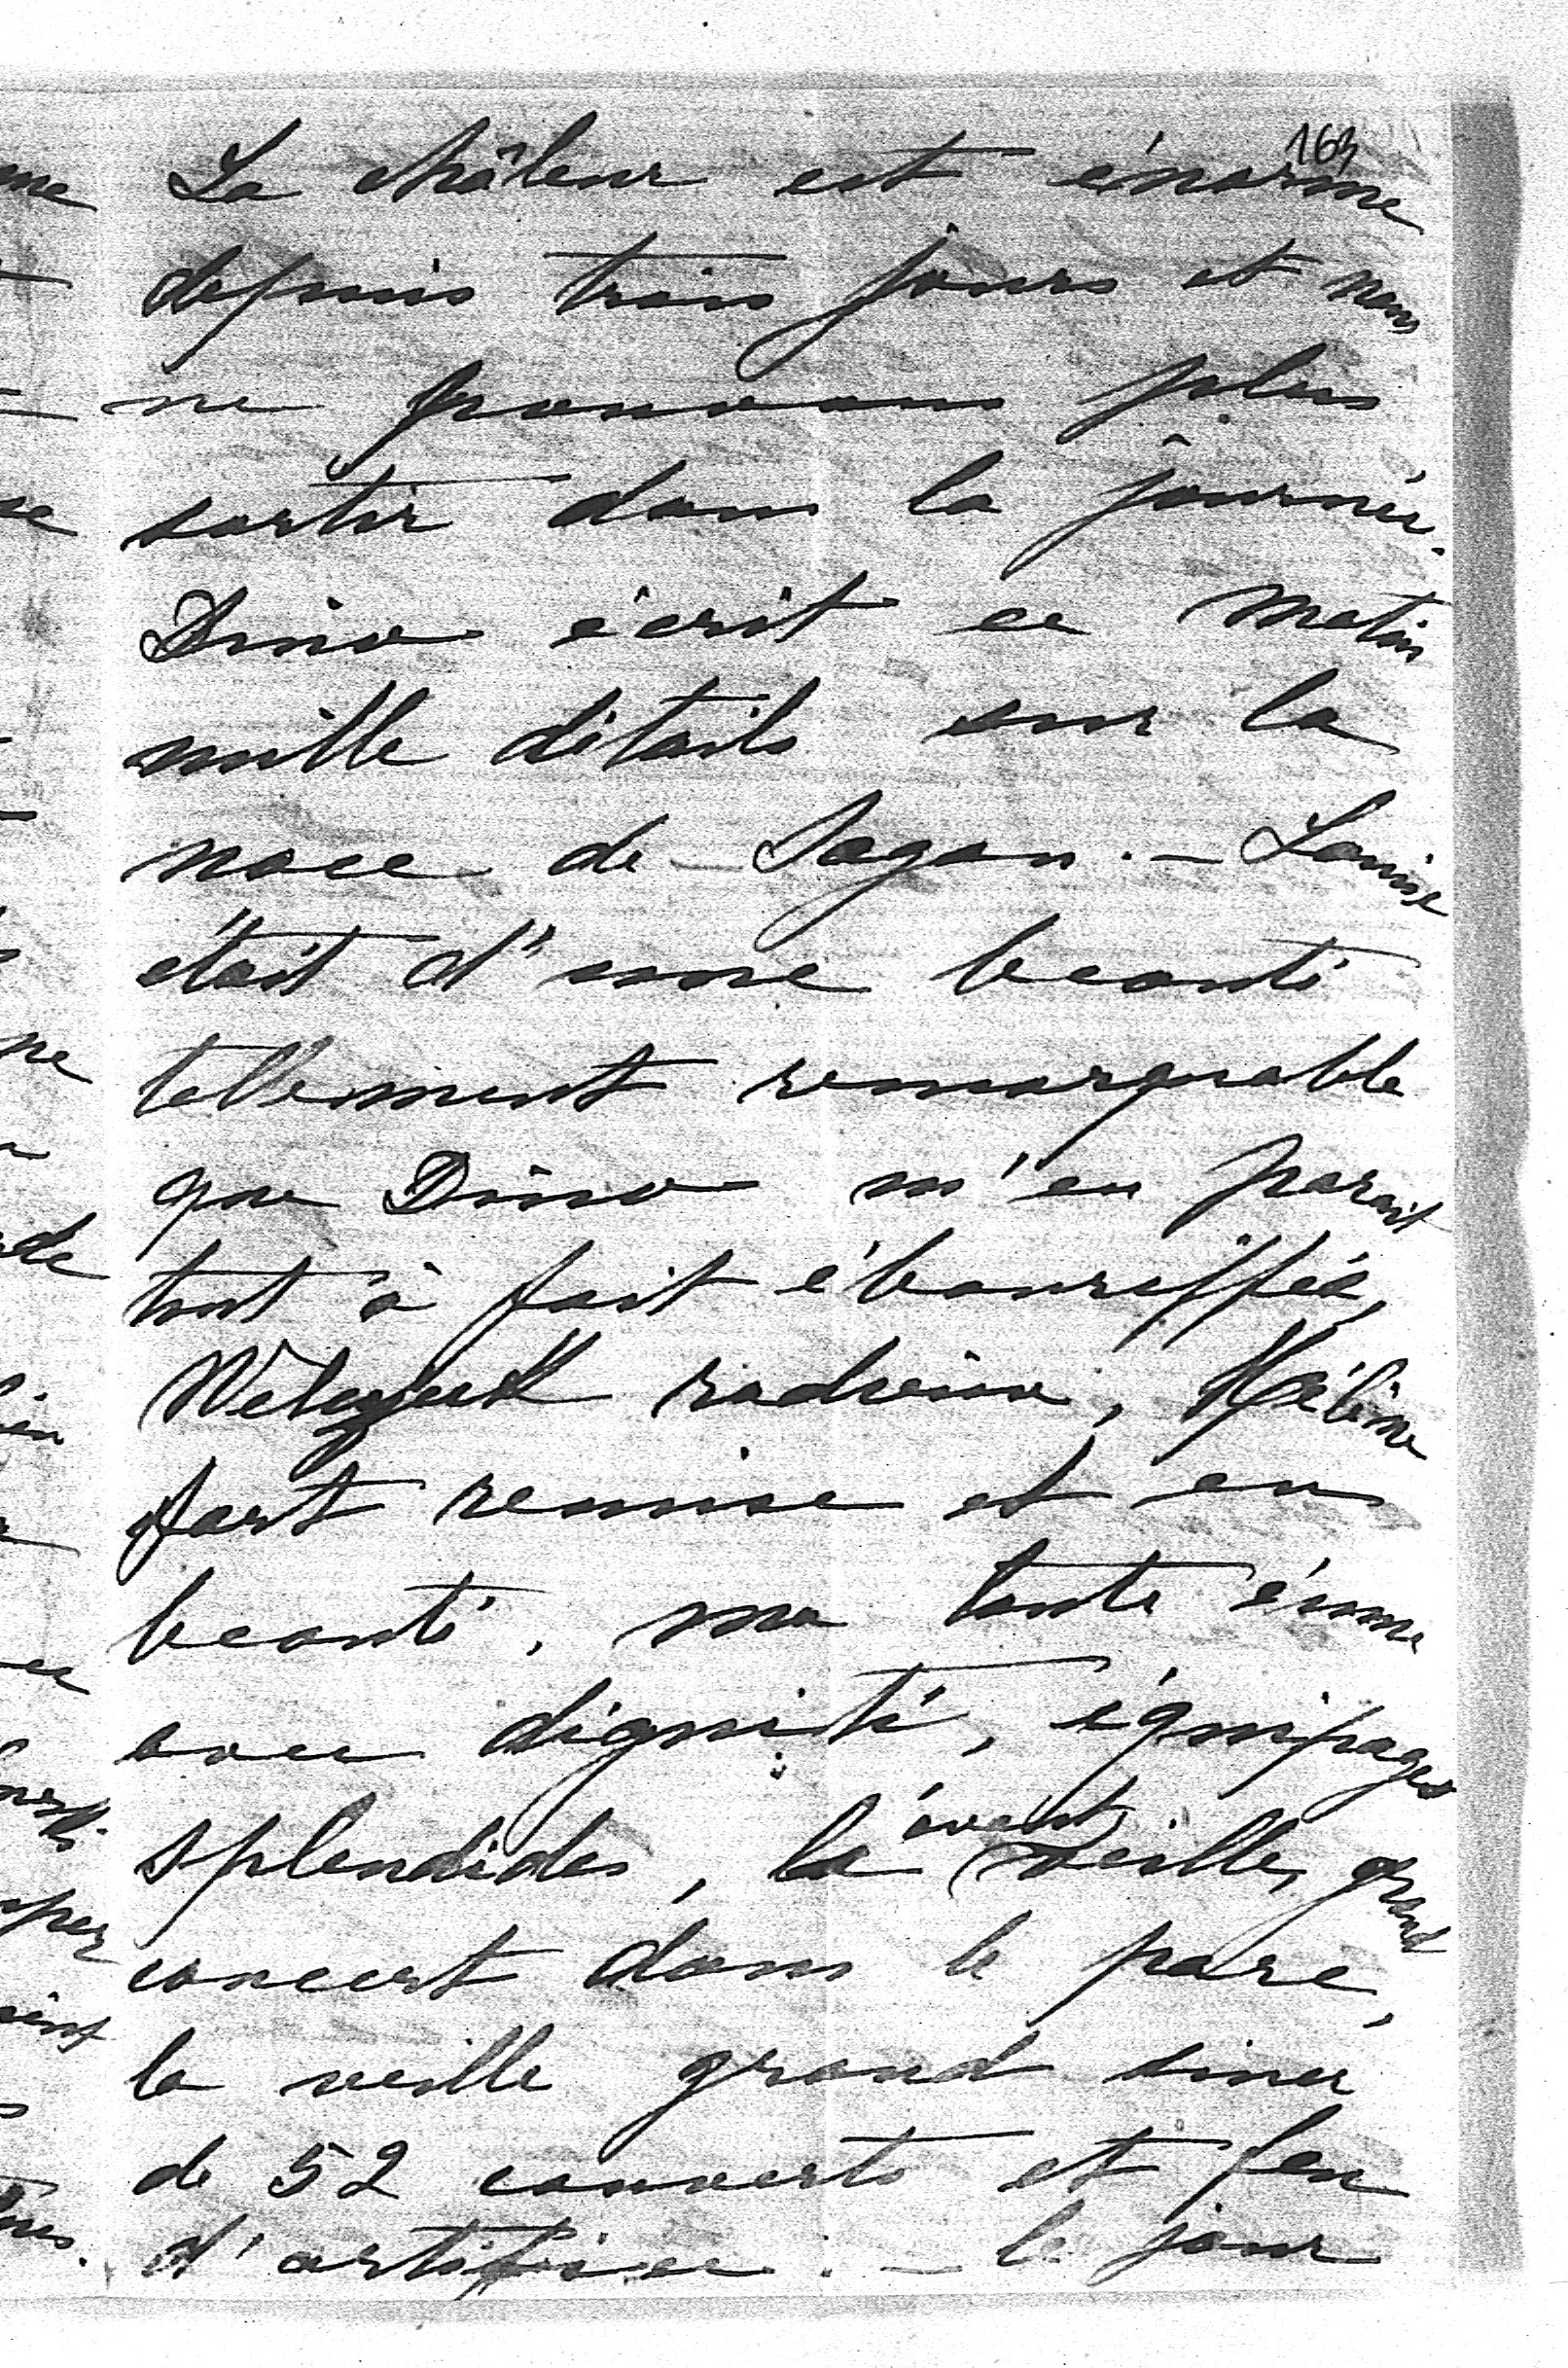 163
La châleur est énorme
depuis trois jours et nous
ne pouvons plus
sortir dans la journée.
Dino écrit ce matin
mille détails sur la
noce de Sagan. – Louise
était d'une beauté
tellement remarquable
que Dino m'en parait
tout à fait ébouriffée,
radieux, Hélène
fort remise et en
beauté, ma tante émue
avec dignité, équipages
splendides, la avant veille, grand
concert dans le parc,
la veille grand diner
de 52 couverts et feu
d'artifice. – le jour